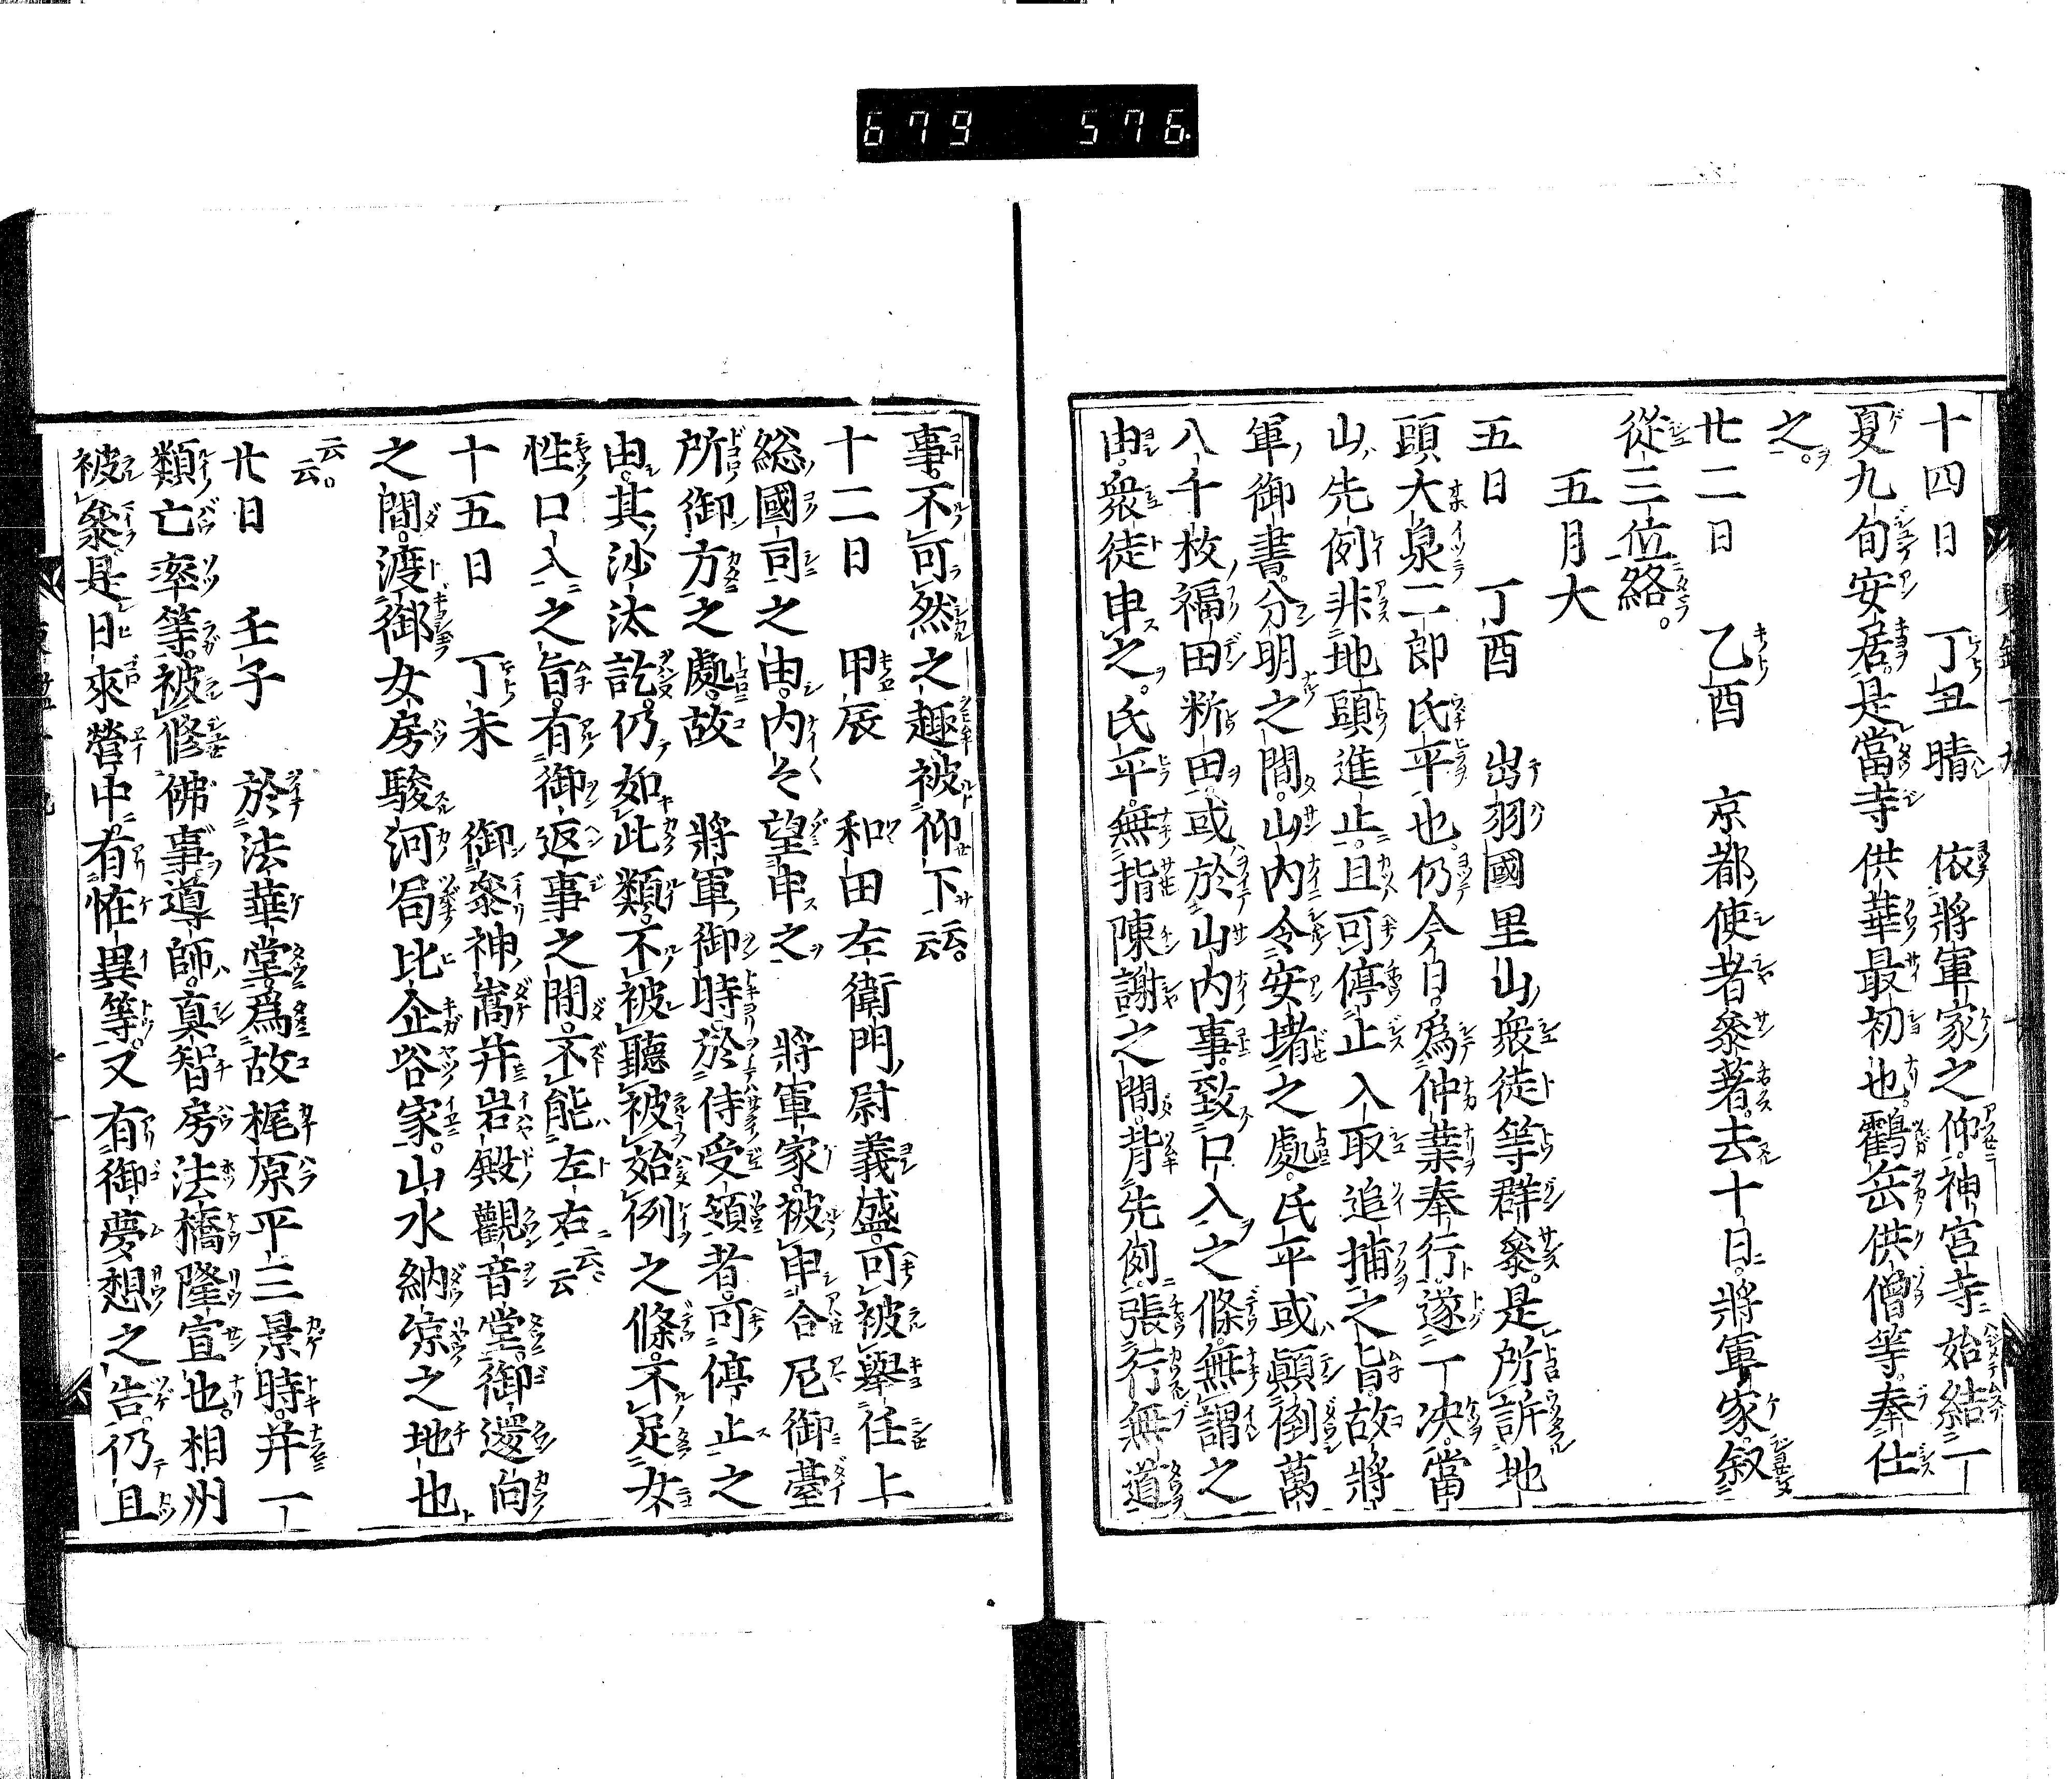 679 576.
十四日 丁丑晴 依將軍家之仰神宮寺始結一
夏九旬安居是當寺供華最初也鶴岳供僧等奉仕
之
廿二日 乙酉 京都使者參著去十日將軍家叙
從三位給
五月大
五日 丁酉 出羽國里山衆徒等群參是所訴地
頭大泉二郎氏平也仍今日爲仲業奉行遂一决當
山先例非地頭進止且可停止入取追捕之旨故將
軍御書分明之間山内令安堵之處氏平或顚倒萬
八千枚福田新田或於山内事致口入之條無謂之
由衆徒申之氏平無指陳謝之間背先例張行無道
事不可然之趣被仰下云云
十二日 甲辰 和田左衛門尉義盛可被擧任上
総國司之由内々望申之 將軍家被申合尼御臺
所御方之處故 將軍御時於侍受領者可停止之
由其沙汰訖仍如此類不被聽被始例之條不足女
性口入之旨有御返事之間不能左右云云
十五日 丁未 御參神嵩并岩殿觀音堂御還向
之間渡御女房駿河局比企谷家山水納涼之地也
云云
廿日 壬子 於法華堂爲故梶原平三景時并一
類亡率等被修佛事導師真智房法橋隆宣也相州
被參是日來營中有恠異等又有御夢想之告仍且